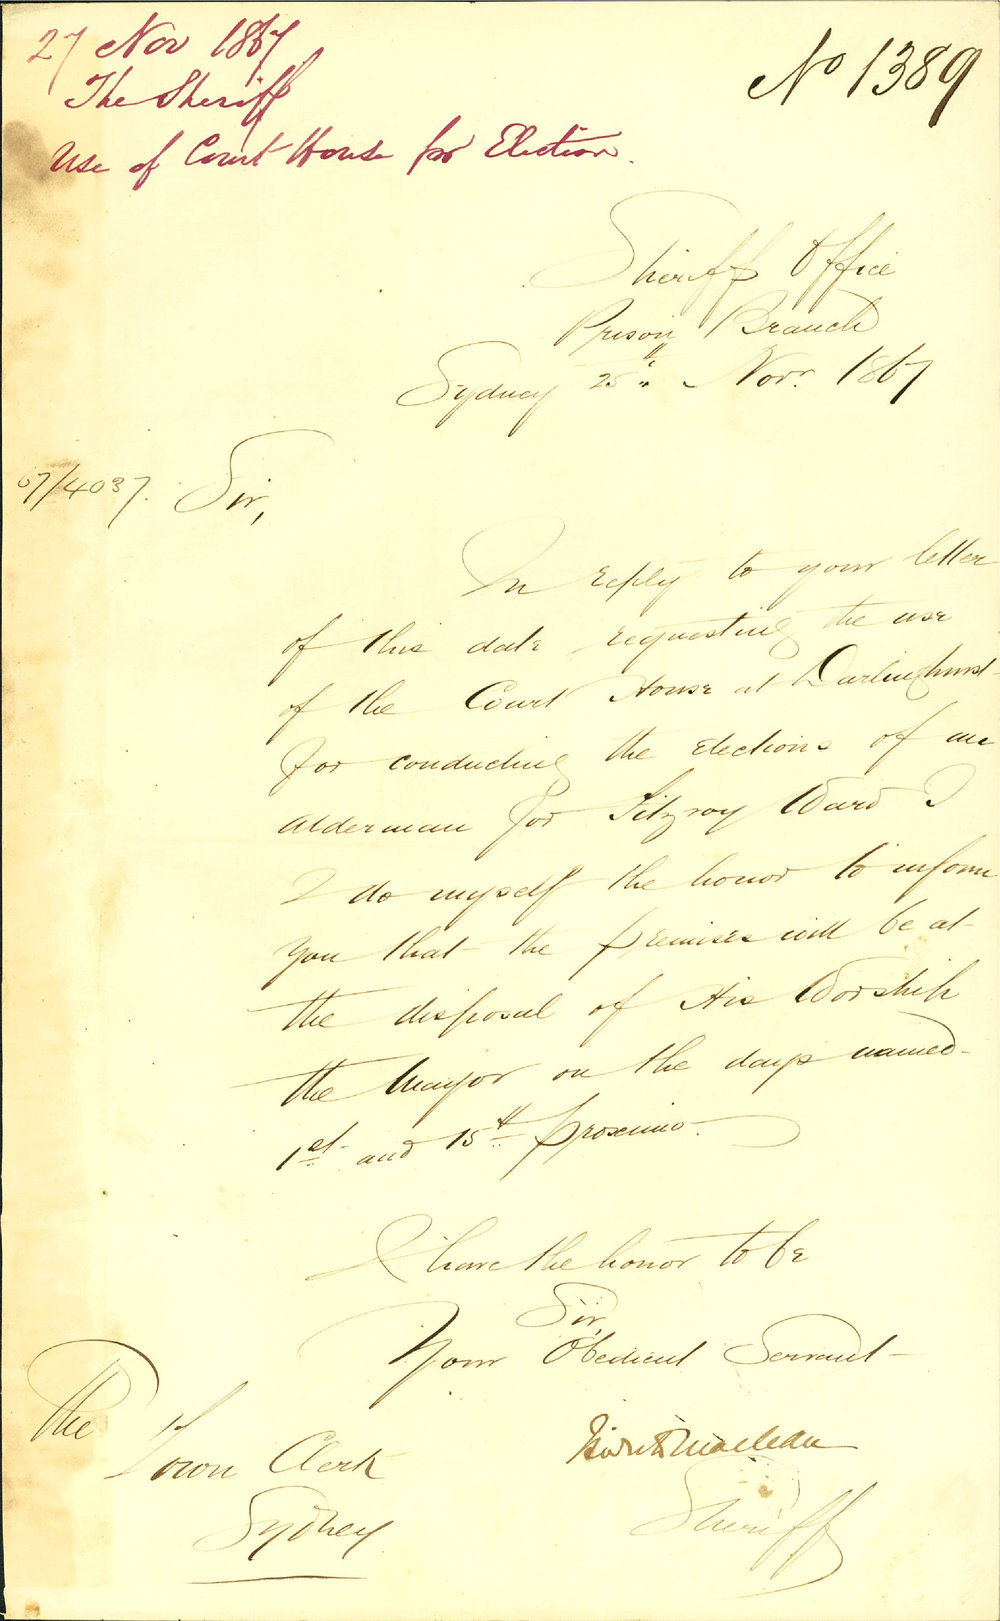 27 Nov 1867
The Sheriff
Use of Court House for Election.
No 1389
Sheriffs Office
Prison Branch
Sydney 25th Novr. 1867
67/4037.
Sir,
In reply to your letter
of this date requesting the use
of the Court House at Darlinghurst
for conducting the elections of an
Alderman for Fitzroy Ward I
I do myself the honor to inform
you that the premises will be at
the disposal of His Worship
the Mayor on the days named
1st and 15th proximo.
I have the honor to be
Sir,
Your Obedient Servant
Maclean
Sheriff
The
Town Clerk
Sydney